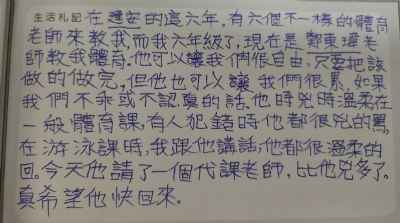 生活札記 在建安的這六年,有六個不一樣的體育
老師來教我,而我六年級了,現在是鄭東瑋老
師教我體育,他可以讓我們很自由,只要把該
做的做完,但他也可以讓我們很累,如果
我們不乖或不認真的話.他時兇時溫柔在
一般體育課,有人犯錯時他都很兇的罵,
在游泳課時,我跟他講話,他都很溫柔的
回。今天他請了一個代課老師,比他兇多了。
真希望他快回來.